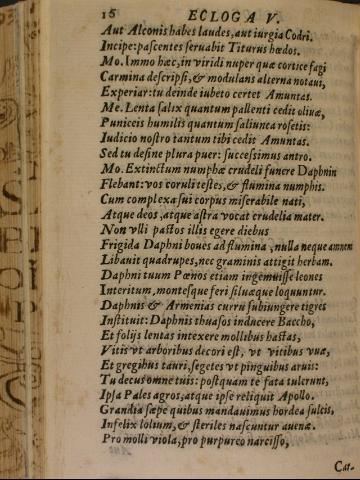 16 ECLOGA V.
Aut Alconis habes laudes, aut iurgia Codri.
Incipe: pascentes seruabit Titurus hœdos.
Mo. Immo hæc, in viridi nuper quæ cortice fagi
Carmina descripsi, & modulans alterna notaui,
Experiar: tu deinde iubeto certet Amuntas.
Me. Lenta salix quantum pallenti cedit oliuæ,
Puniceis humilis quantum saliunca rosetis:
Iudicio nostro tantum tibi cedit Amuntas.
Sed tu desine plura puer: successimus antro.
Mo. Extinctum numphæ crudeli funere Daphnin
Flebant: vos coruli testes, & flumina numphis.
Cum complexa sui corpus miserabile nati,
Atque deos, atque astra vocat crudelia mater.
Non vlli pastos illis egere diebus
Frigida Daphni boues ad flumina, nulla neque amnem
Libauit quadrupes, nec graminis attigit herbam.
Daphni tuum Pœnos etiam ingemuisse leones
Interitum, montesque feri siluæque loquuntur.
Daphnis & Armenias curru subiungere tigres
Instituit: Daphnis thiasos inducere Baccho,
Et folijs lentas intexere mollibus hastas,
Vitis vt arboribus decori est, vt vitibus vuæ,
Et gregibus tauri, segetes vt pinguibus aruis:
Tu decus omne tuis: postquam te fata tulerunt,
Ipsa Pales agros, atque ipse reliquit Apollo.
Grandia sæpe quibus mandauimus hordea sulcis,
Infelix lolium, & steriles nascuntur auenæ.
Pro molli viola, pro purpureo narcisso,
Cat-